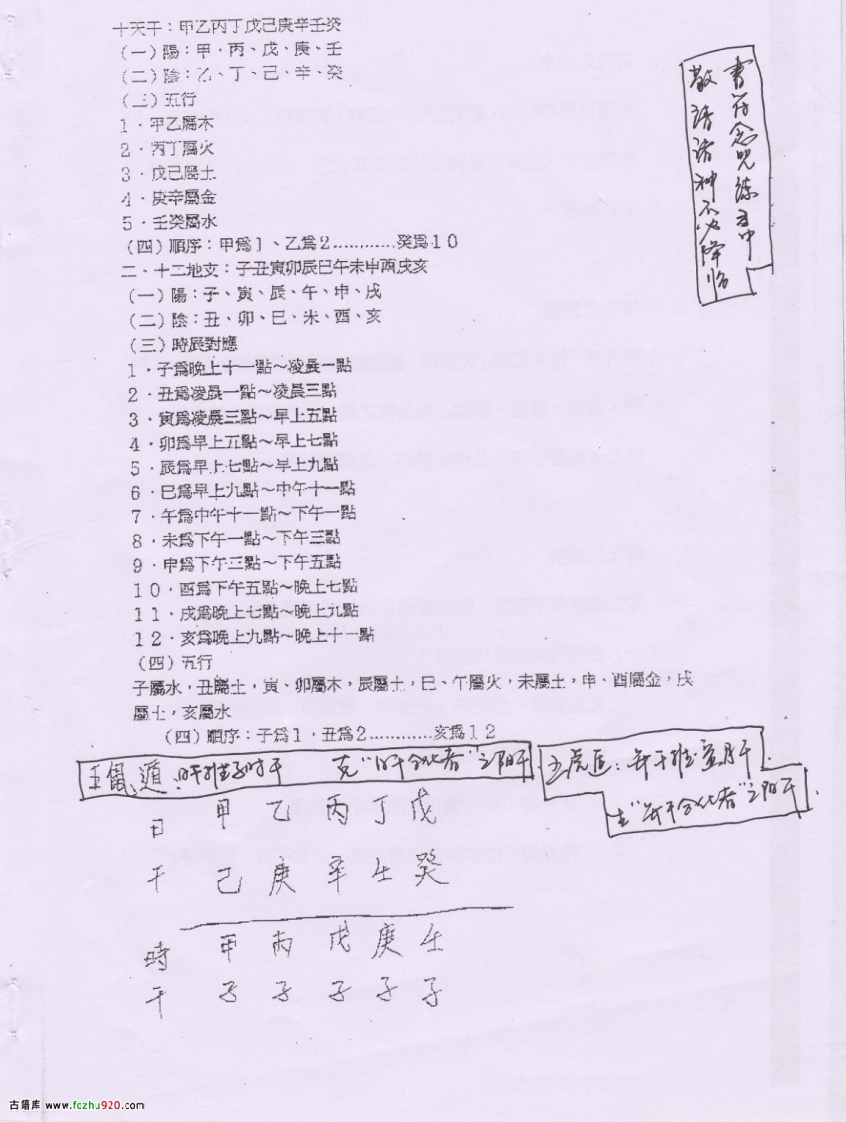 十天干：甲乙丙丁戊己庚辛壬癸
（一）陽：甲、丙、戊、庚、壬
（二）陰：乙、丁、己、辛、癸
（三）五行
1．甲乙屬木
2．丙丁屬火
3．戊己屬土
4．庚辛屬金
5．壬癸屬水
（四）順序：甲爲1、乙爲2…………癸爲10
二、十二地支：子丑寅卯辰巳午未申酉戌亥
（一）陽：子、寅、辰、午、申、戌
（二）陰：丑、卯、巳、未、酉、亥
（三）時辰對應
1．子爲晚上十一點～凌晨一點
2．丑爲凌晨一點～凌晨三點
3．寅爲凌晨三點～早上五點
4．卯爲早上五點～早上七點
5．辰爲早上七點～早上九點
6．巳爲早上九點～中午十一點
7．午爲中午十一點～下午一點
8．未爲下午一點～下午三點
9．申爲下午三點～下午五點
10．酉爲下午五點～晚上七點
11．戌爲晚上七點～晚上九點
12．亥爲晚上九點～晚上十一點
（四）五行
子屬水，丑屬土，寅、卯屬木，辰屬土，巳、午屬火，未屬土，申、酉屬金，戌
屬土，亥屬水
（四）順序：子爲1，丑爲2…………亥爲12
書符念咒練
敬請諸神不必降临
五鼠遁：时干 克“合化者”之阳干
五虎遁：年干 寅月干
生“年干合化者”之阳干
日 甲 乙 丙 丁 戊
干 己 庚 辛 壬 癸
時 甲 丙 戊 庚 壬
干 子 子 子 子 子
古籍库 www.fozhu920.com